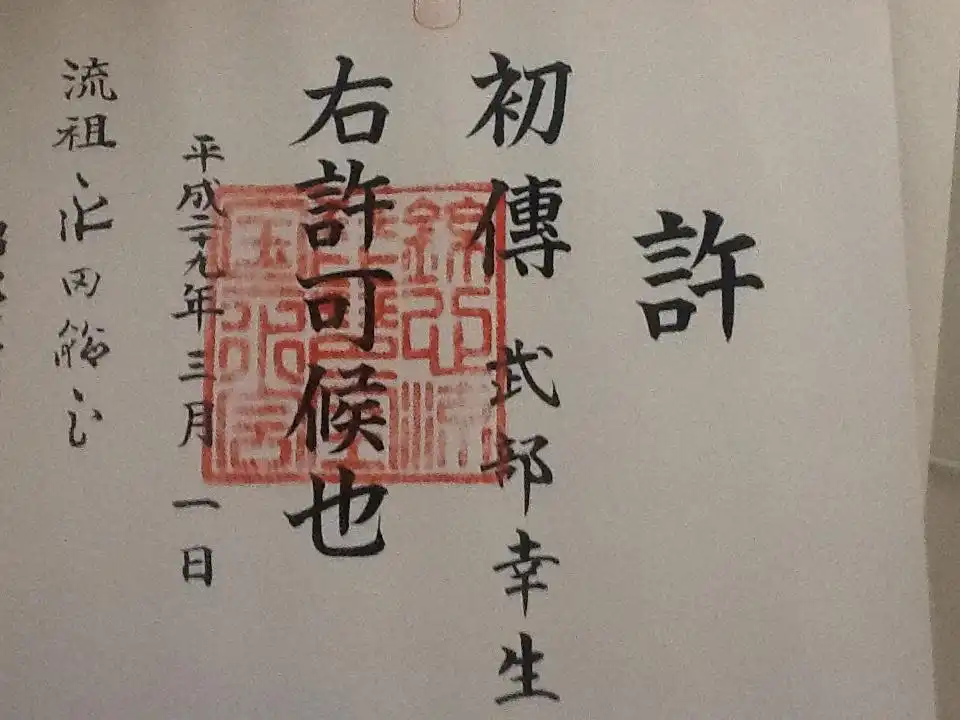 許
初傳 式部幸生
右許可候也
平成二十九年 三月 一日
流祖